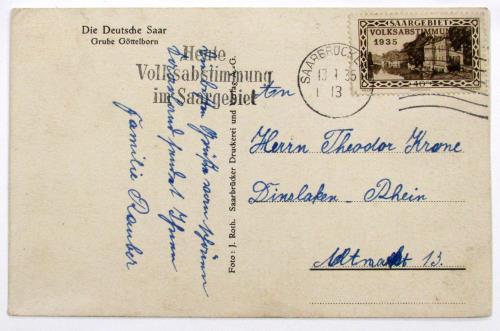 Die Deutsche Saar
Grube Göttelborn
Heute
Volksabstimmung
im Saargebiet
SAARBRÜCK
13 1 35
13
SAARGEBIET
VOLKSABSTIMMUNG
1935
Die herzlichsten Grüße vom schönen
Saarland sendet Ihnen
Familie Rauber
Foto: J. Roth. Saarbrücker Druckerei und Verlag A.-G.
An
Herrn Theodor Krone
Dinslaken-Rhein
Altmarkt 13.